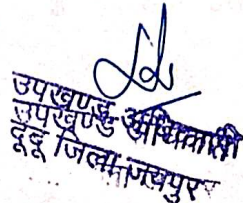 उपखण्ड अधिकारी
उपखण्ड अधिकारी
दूदू जिला-जयपुर